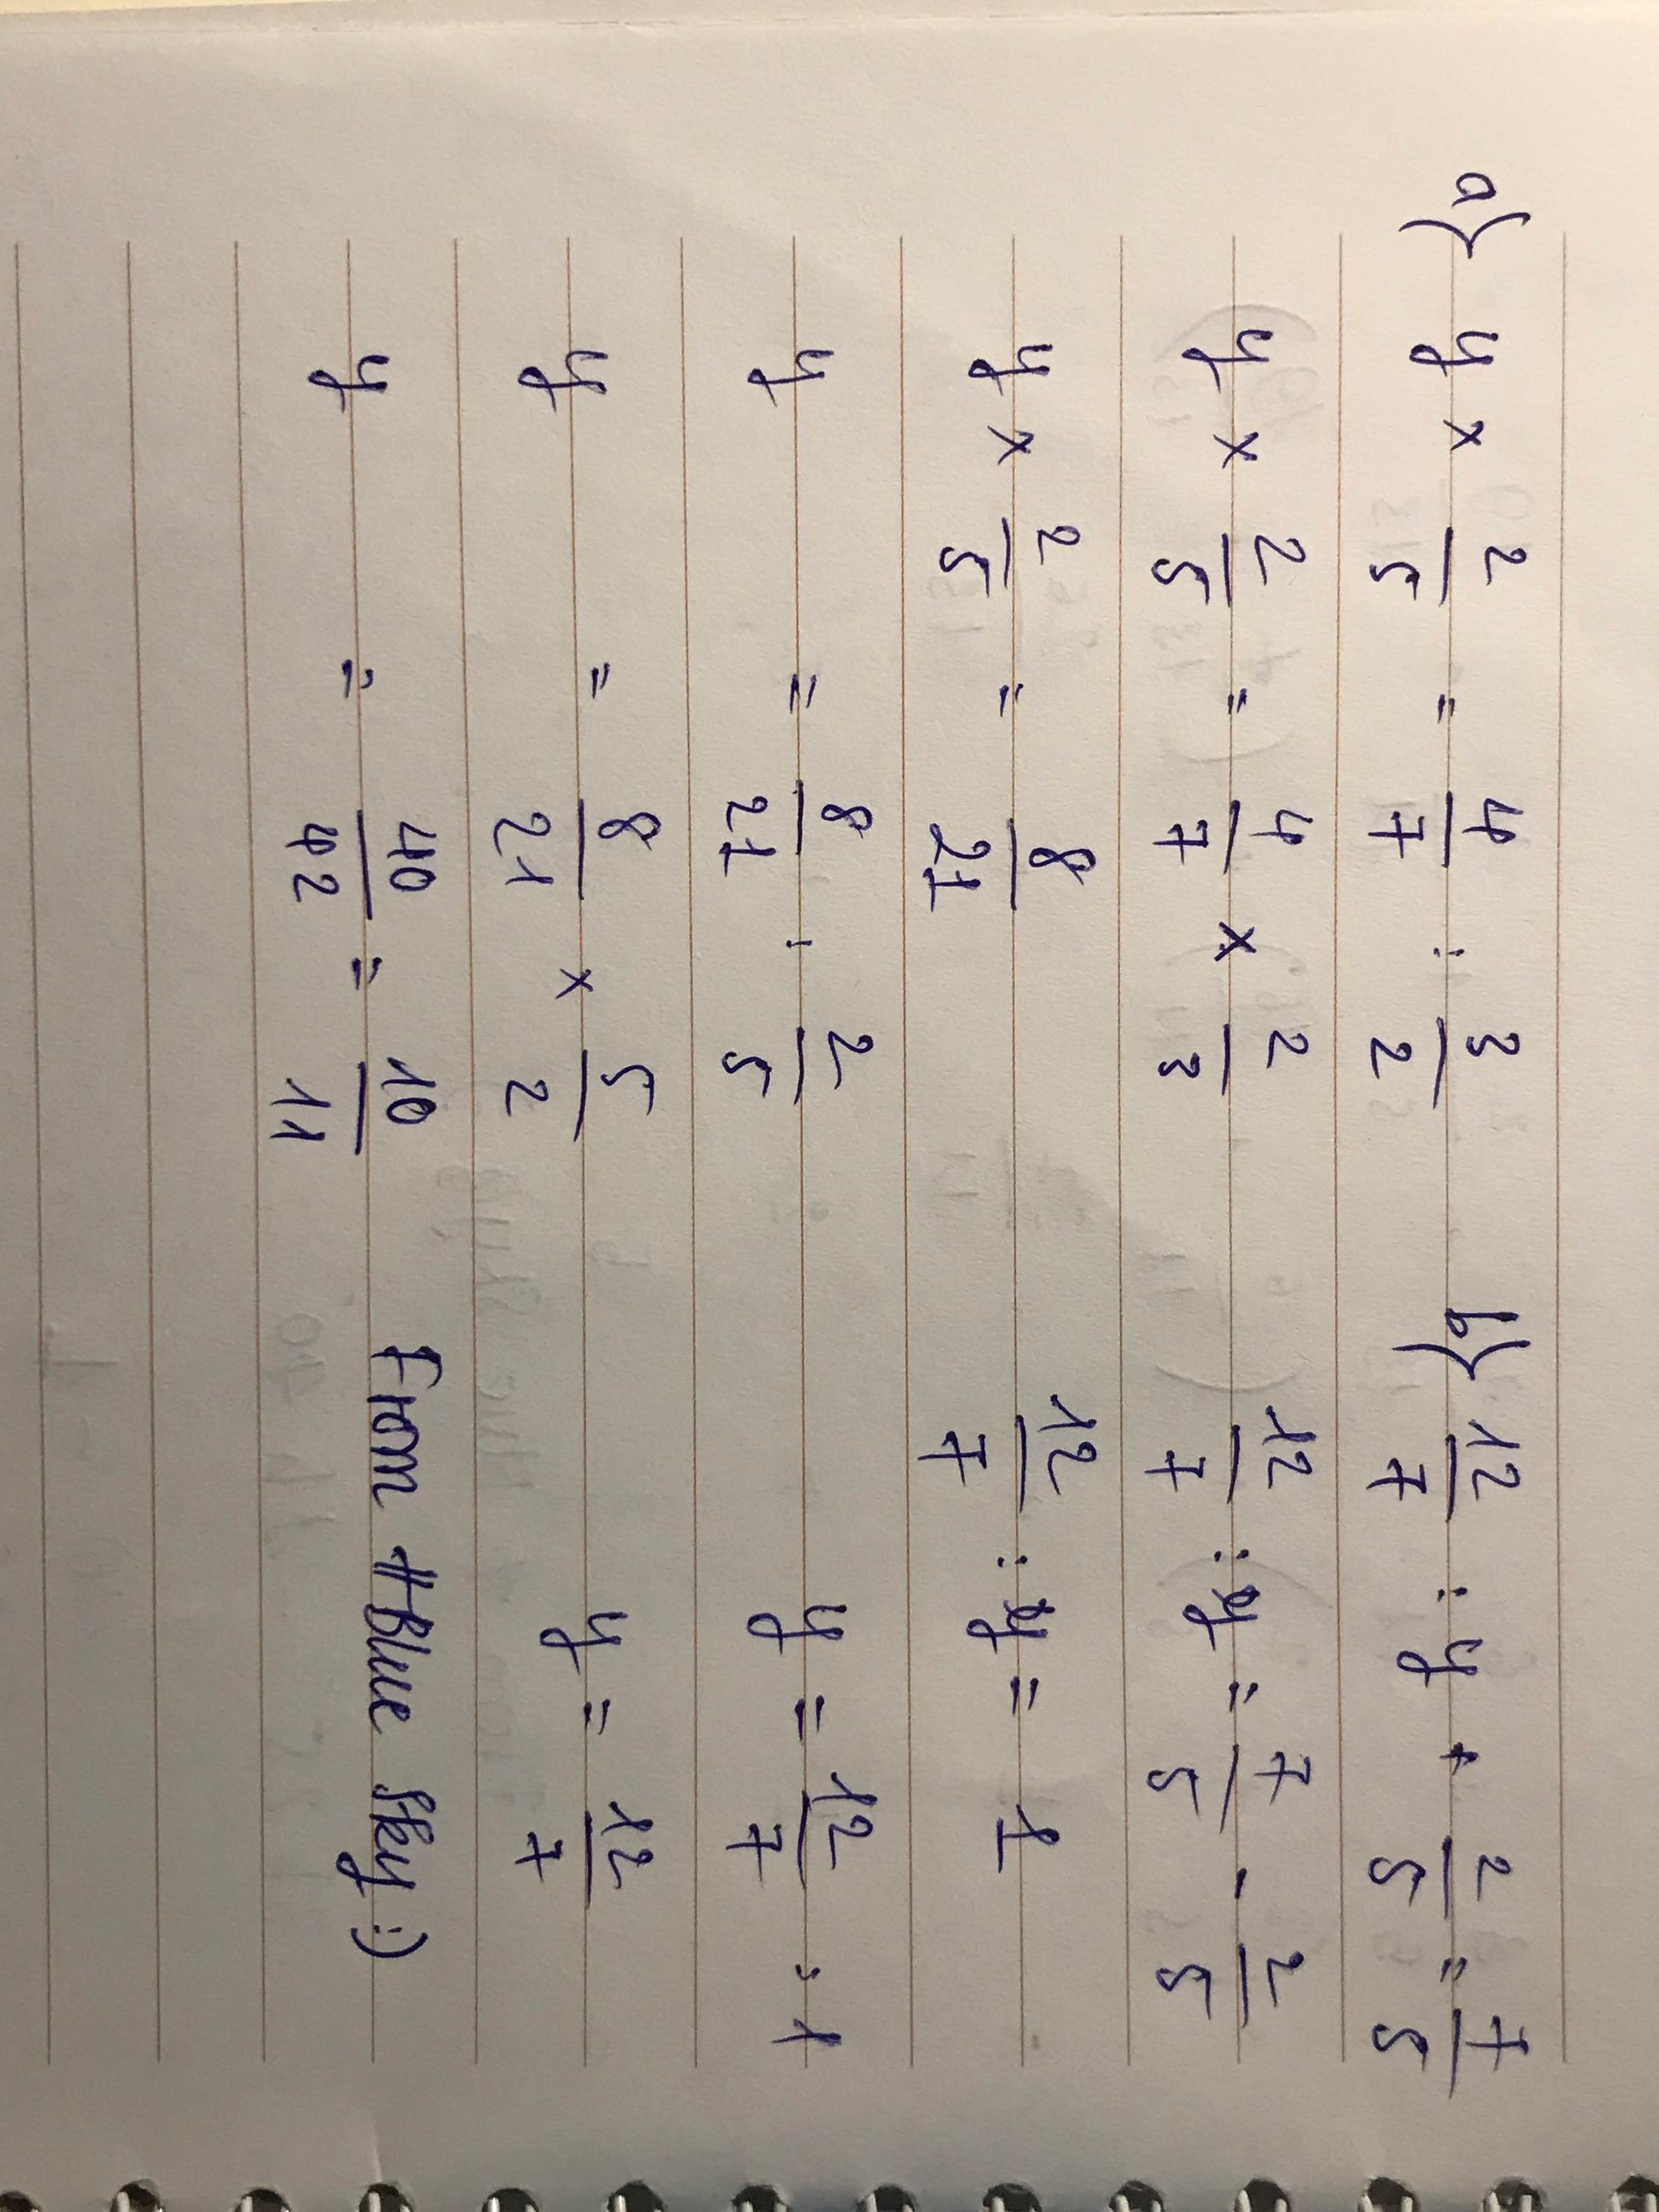 a) y × 2/5 = 4/7 : 3/2
y × 2/5 = 4/7 × 2/3
y × 2/5 = 8/21
y = 8/21 : 2/5
y = 8/21 × 5/2
y = 40/42 = 10/11
b) 12/7 : y + 2/5 = 7/5
12/7 : y = 7/5 - 2/5
12/7 : y = 1
y = 12/7 : 1
y = 12/7
From #Blue Sky :)